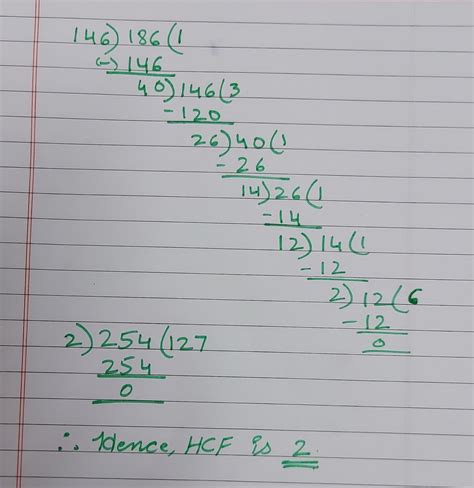 146) 186 (1
(-) 146
40) 146 (3
- 120
26) 40 (1
- 26
14) 26 (1
- 14
12) 14 (1
- 12
2) 12 (6
- 12
0
2) 254 (127
254
0
∴ Hence, HCF is 2.